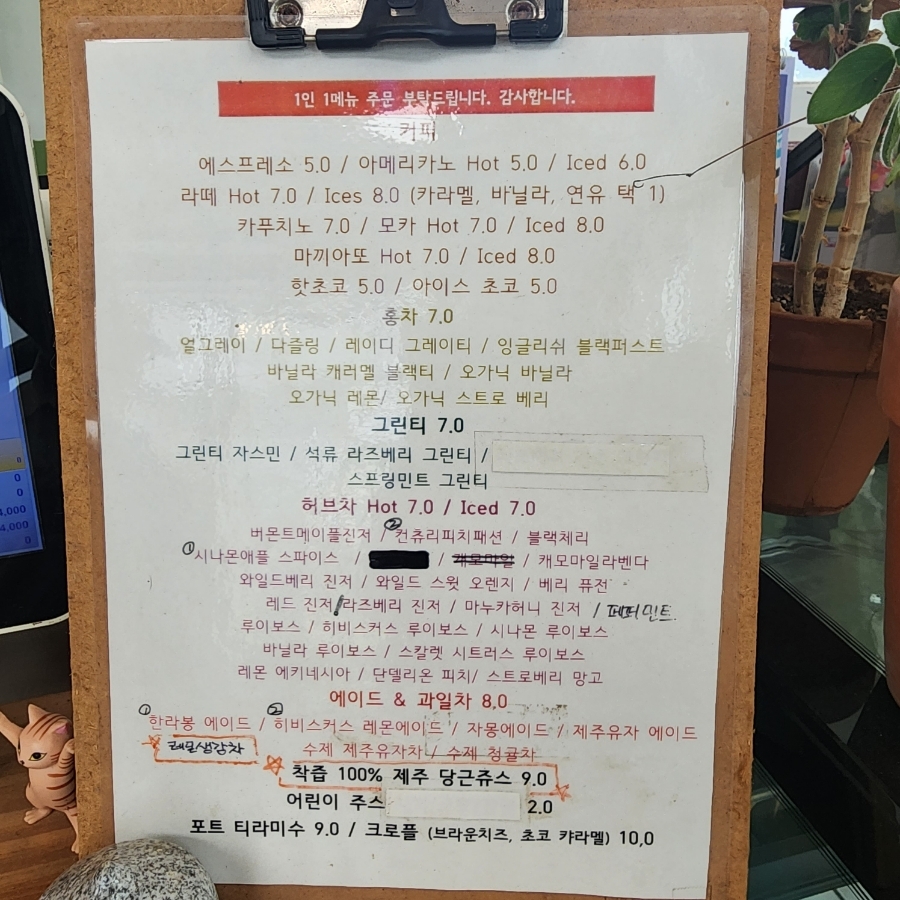 1인 1메뉴 주문 부탁드립니다. 감사합니다.
커피
에스프레소 5.0 / 아메리카노 Hot 5.0 / Iced 6.0
라떼 Hot 7.0 / Ices 8.0 (카라멜, 바닐라, 연유 택 1)
카푸치노 7.0 / 모카 Hot 7.0 / Iced 8.0
마끼아또 Hot 7.0 / Iced 8.0
핫초코 5.0 / 아이스 초코 5.0
홍차 7.0
얼그레이 / 다즐링 / 레이디 그레이티 / 잉글리쉬 블랙퍼스트
바닐라 캐러멜 블랙티 / 오가닉 바닐라
오가닉 레몬/ 오가닉 스트로 베리
그린티 7.0
그린티 자스민 / 석류 라즈베리 그린티 /
스프링민트 그린티
허브차 Hot 7.0 / Iced 7.0
버몬트메이플진저 / ② 컨츄리피치패션 / 블랙체리
① 시나몬애플 스파이스 / / 캐모마일 / 캐모마일라벤다
와일드베리 진저 / 와일드 스윗 오렌지 / 베리 퓨전
레드 진저/라즈베리 진저 / 마누카허니 진저 / 페퍼민트
루이보스 / 히비스커스 루이보스 / 시나몬 루이보스
바닐라 루이보스 / 스칼렛 시트러스 루이보스
레몬 에키네시아 / 단델리온 피치/ 스트로베리 망고
에이드 & 과일차 8,0
① 한라봉 에이드 / ② 히비스커스 레몬에이드 / 자몽에이드 / 제주유자 에이드
레몬생강차 수제 제주유자차/ 수제 청귤차
착즙 100% 제주 당근쥬스 9.0
어린이 주스 2.0
포트 티라미수 9.0 / 크로플 (브라운치즈, 초코 캬라멜) 10,0
4,000
4,000